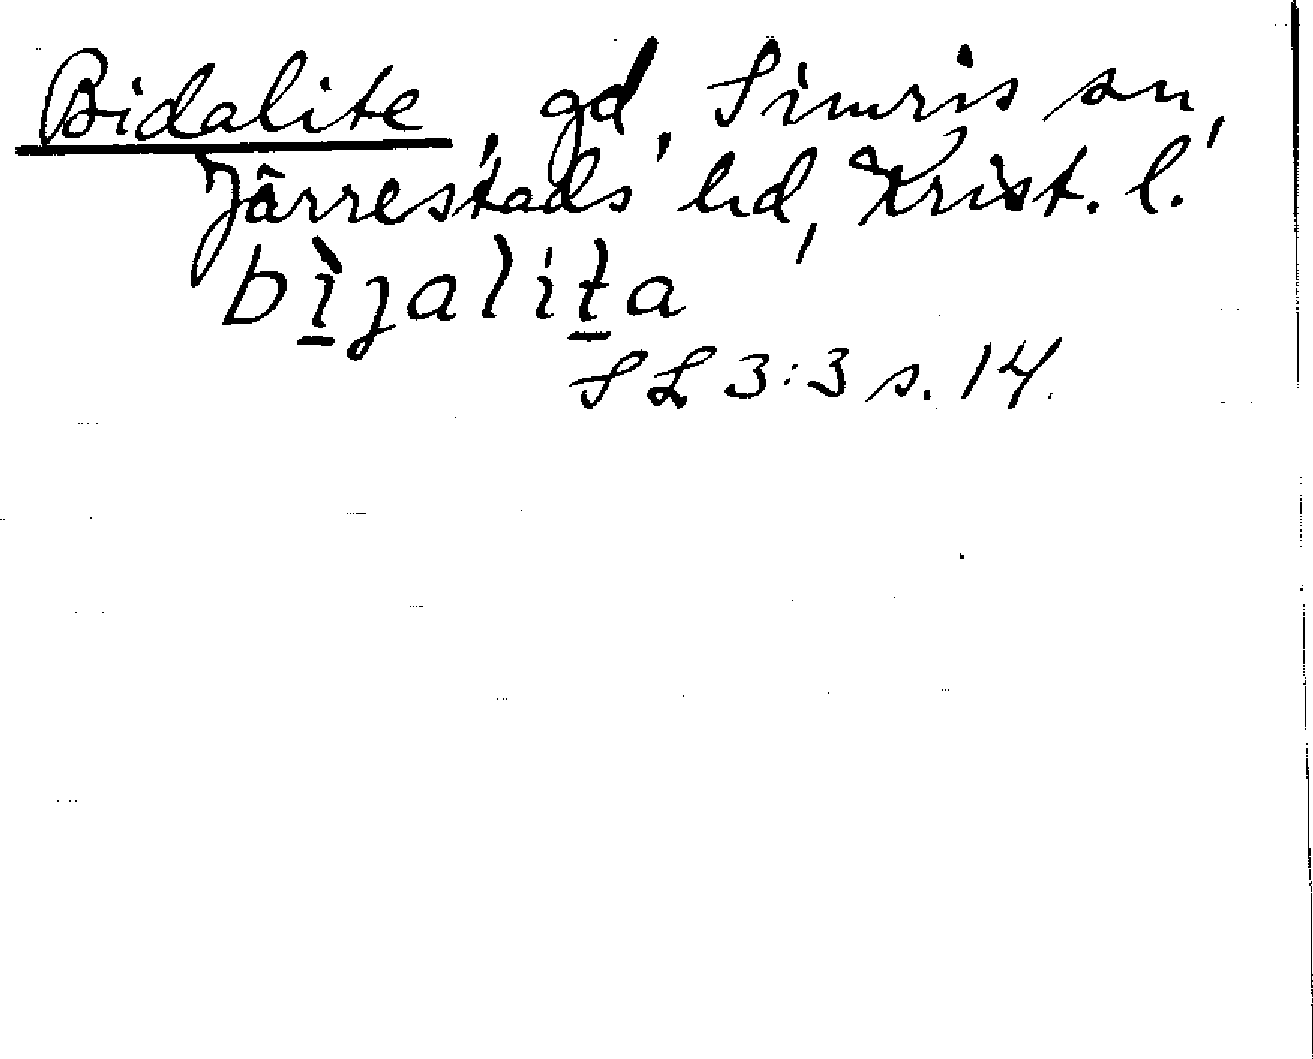 Bidalite, gd, Simris sn,
Järrestads hd, Krist. l.
bì̠jalit̠a
SL 3:3 s. 14.